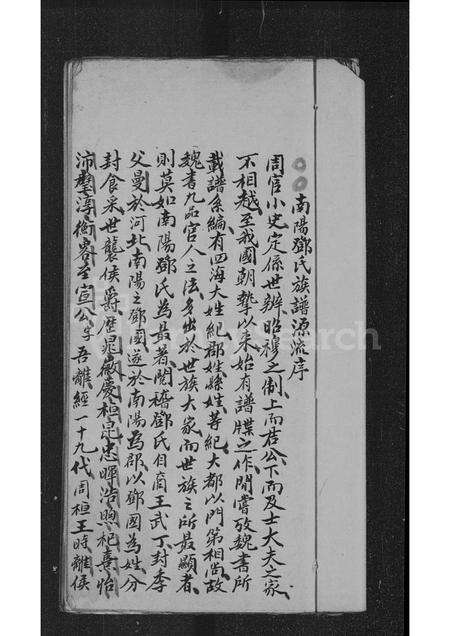 南陽鄧氏族譜源流序
周官小史定係世辨昭穆之制上而居公下而及士大夫之家
不相越至我國朝摯以來始有譜牒之作閒嘗攷魏書所
載譜系編有四海大姓紀郡姓縣姓等紀大都以門第相尚故
魏書九品官人之法多出於世族大家而世族之所最顯者
則莫如南陽鄧氏為最著閒稽鄧氏自商王武丁封季
父曼於河北南陽之鄧國遂於南陽為郡以鄧國為姓分
封食采世襲侯爵歷晁嚴慶桓是忠暉浩煦祀熹怡
沛 淳衡 至宣公 吾離經一十九代周桓王時離侯
FamilySearch